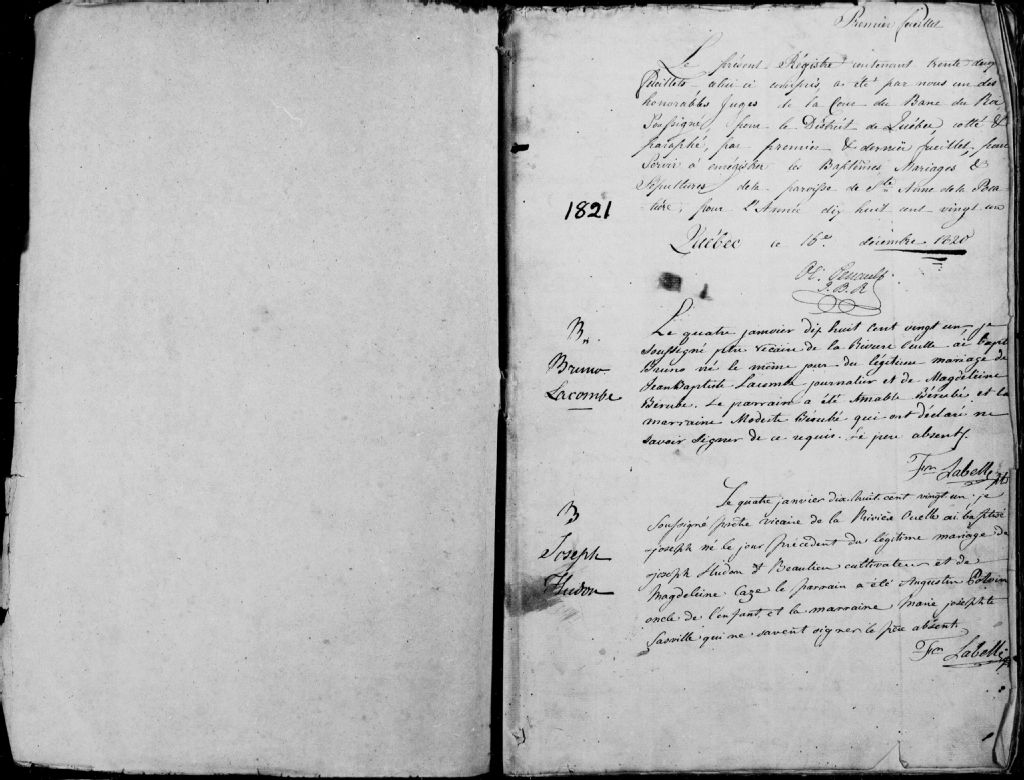 Premier feuillet
Le présent Régistre contenant trente deux
feuillets celui ci compris, a été par nous un des
honorables Juges de la Cour du Banc du Roi,
Soussigné, pour le District de Québec, cotté &
paraphé, par premier & dernier feuillet, pour
Servir à enrégistrer les Baptêmes Mariages &
Sépultures de la paroisse de Ste Anne de la Poca
tière, pour L'Année dix huit cent vingt un
1821
Québec ce 16e. décembre 1820
Ol. Perrault
J.B.R
B
Bruno
Lacombe
Le quatre janvier dix huit cent vingt un, je
soussigné ptre vicaire de la Riviere Ouelle ai bapt
Bruno né le même jour du légitime mariage de
Jean Baptiste Lacombe journalier et de Magdeleine
Bérubé. Le parrain a été Amable Bérubé et la
marraine Modeste Bérubé qui ont déclaré ne
savoir signer de ce requis. Le pere absent.
Frn Labelle ptr
B
Joseph
Hudon
Le quatre janvier dix huit cent vingt un je
soussigné prêtre vicaire de la Rivière Ouelle ai baptisé
joseph né le jour précédent du légitime mariage de
joseph Hudon dt Beaulieu cultivateur et de
Magdeleine Caze le parrain a été Augustin
oncle de l'enfant et la marraine Marie josephte
Lasville qui ne savent signer le père absent.
Frn Labelle